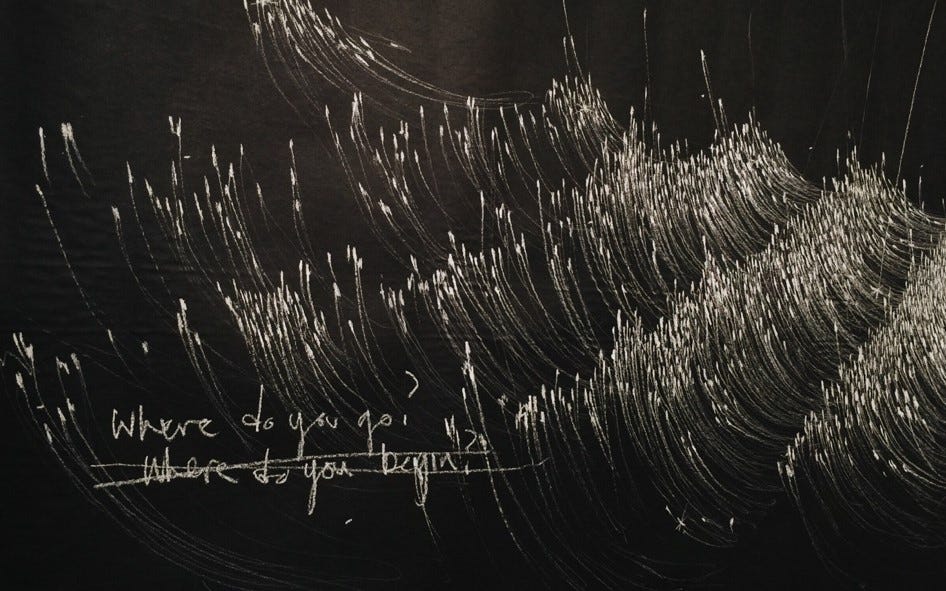 Where do you go?
Where do you begin?